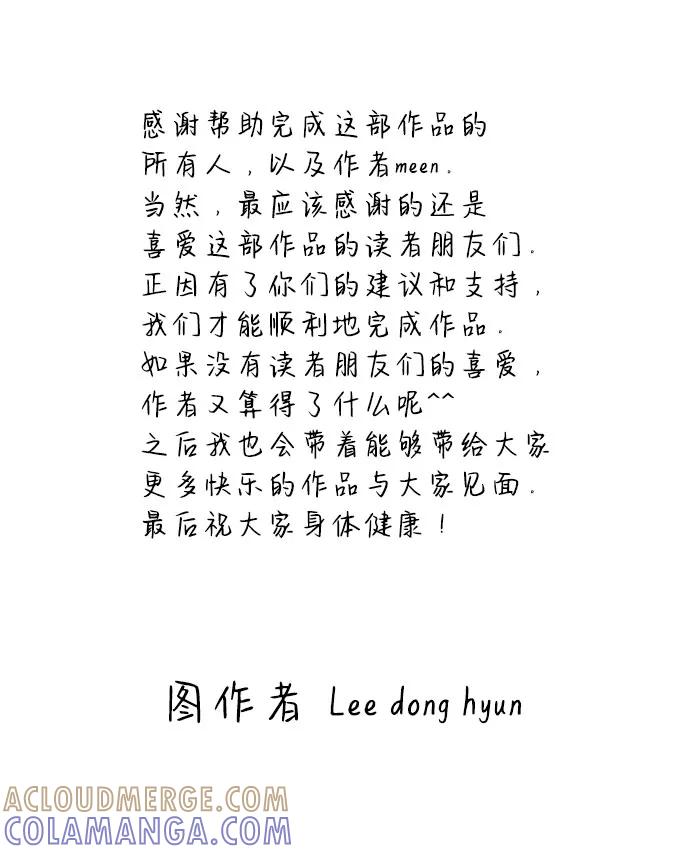 感谢帮助完成这部作品的
所有人，以及作者meen.
当然，最应该感谢的还是
喜爱这部作品的读者朋友们.
正因有了你们的建议和支持，
我们才能顺利地完成作品.
如果没有读者朋友们的喜爱，
作者又算得了什么呢^^
之后我也会带着能够带给大家
更多快乐的作品与大家见面.
最后祝大家身体健康！
图作者 Lee dong hyun
ACLOUDMERGE.COM
COLAMANGA.COM